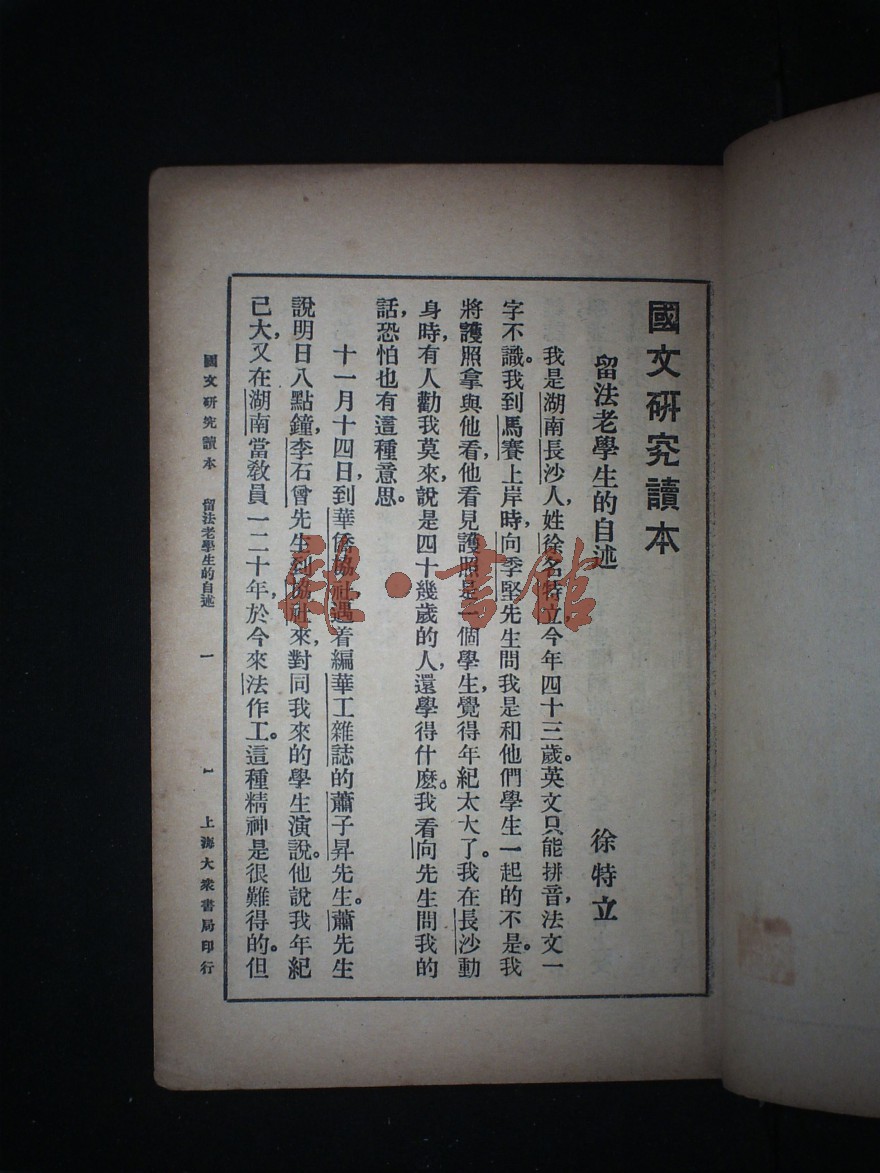 國文研究讀本
留法老學生的自述 徐特立
我是湖南長沙人，姓徐名特立，今年四十三歲。英文只能拼音，法文一
字不識。我到馬賽上岸時，向季堅先生問我是和他們學生一起的不是。我
將護照拿與他看，他看見護照是一個學生，覺得年紀太大了。我在長沙動
身時，有人勸我莫來，說是四十幾歲的人，還學得什麼。我看向先生問我的
話，恐怕也有這種意思。
十一月十四日，到華僑協社，遇着編華工雜誌的蕭子昇先生。蕭先生
說明日八點鐘，李石曾先生到協社來，對同我來的學生演說。他說我年紀
已大，又在湖南當教員一二十年，於今來法作工。這種精神是很難得的。但
國文研究讀本 留法老學生的自述 一 1 上海大衆書局印行